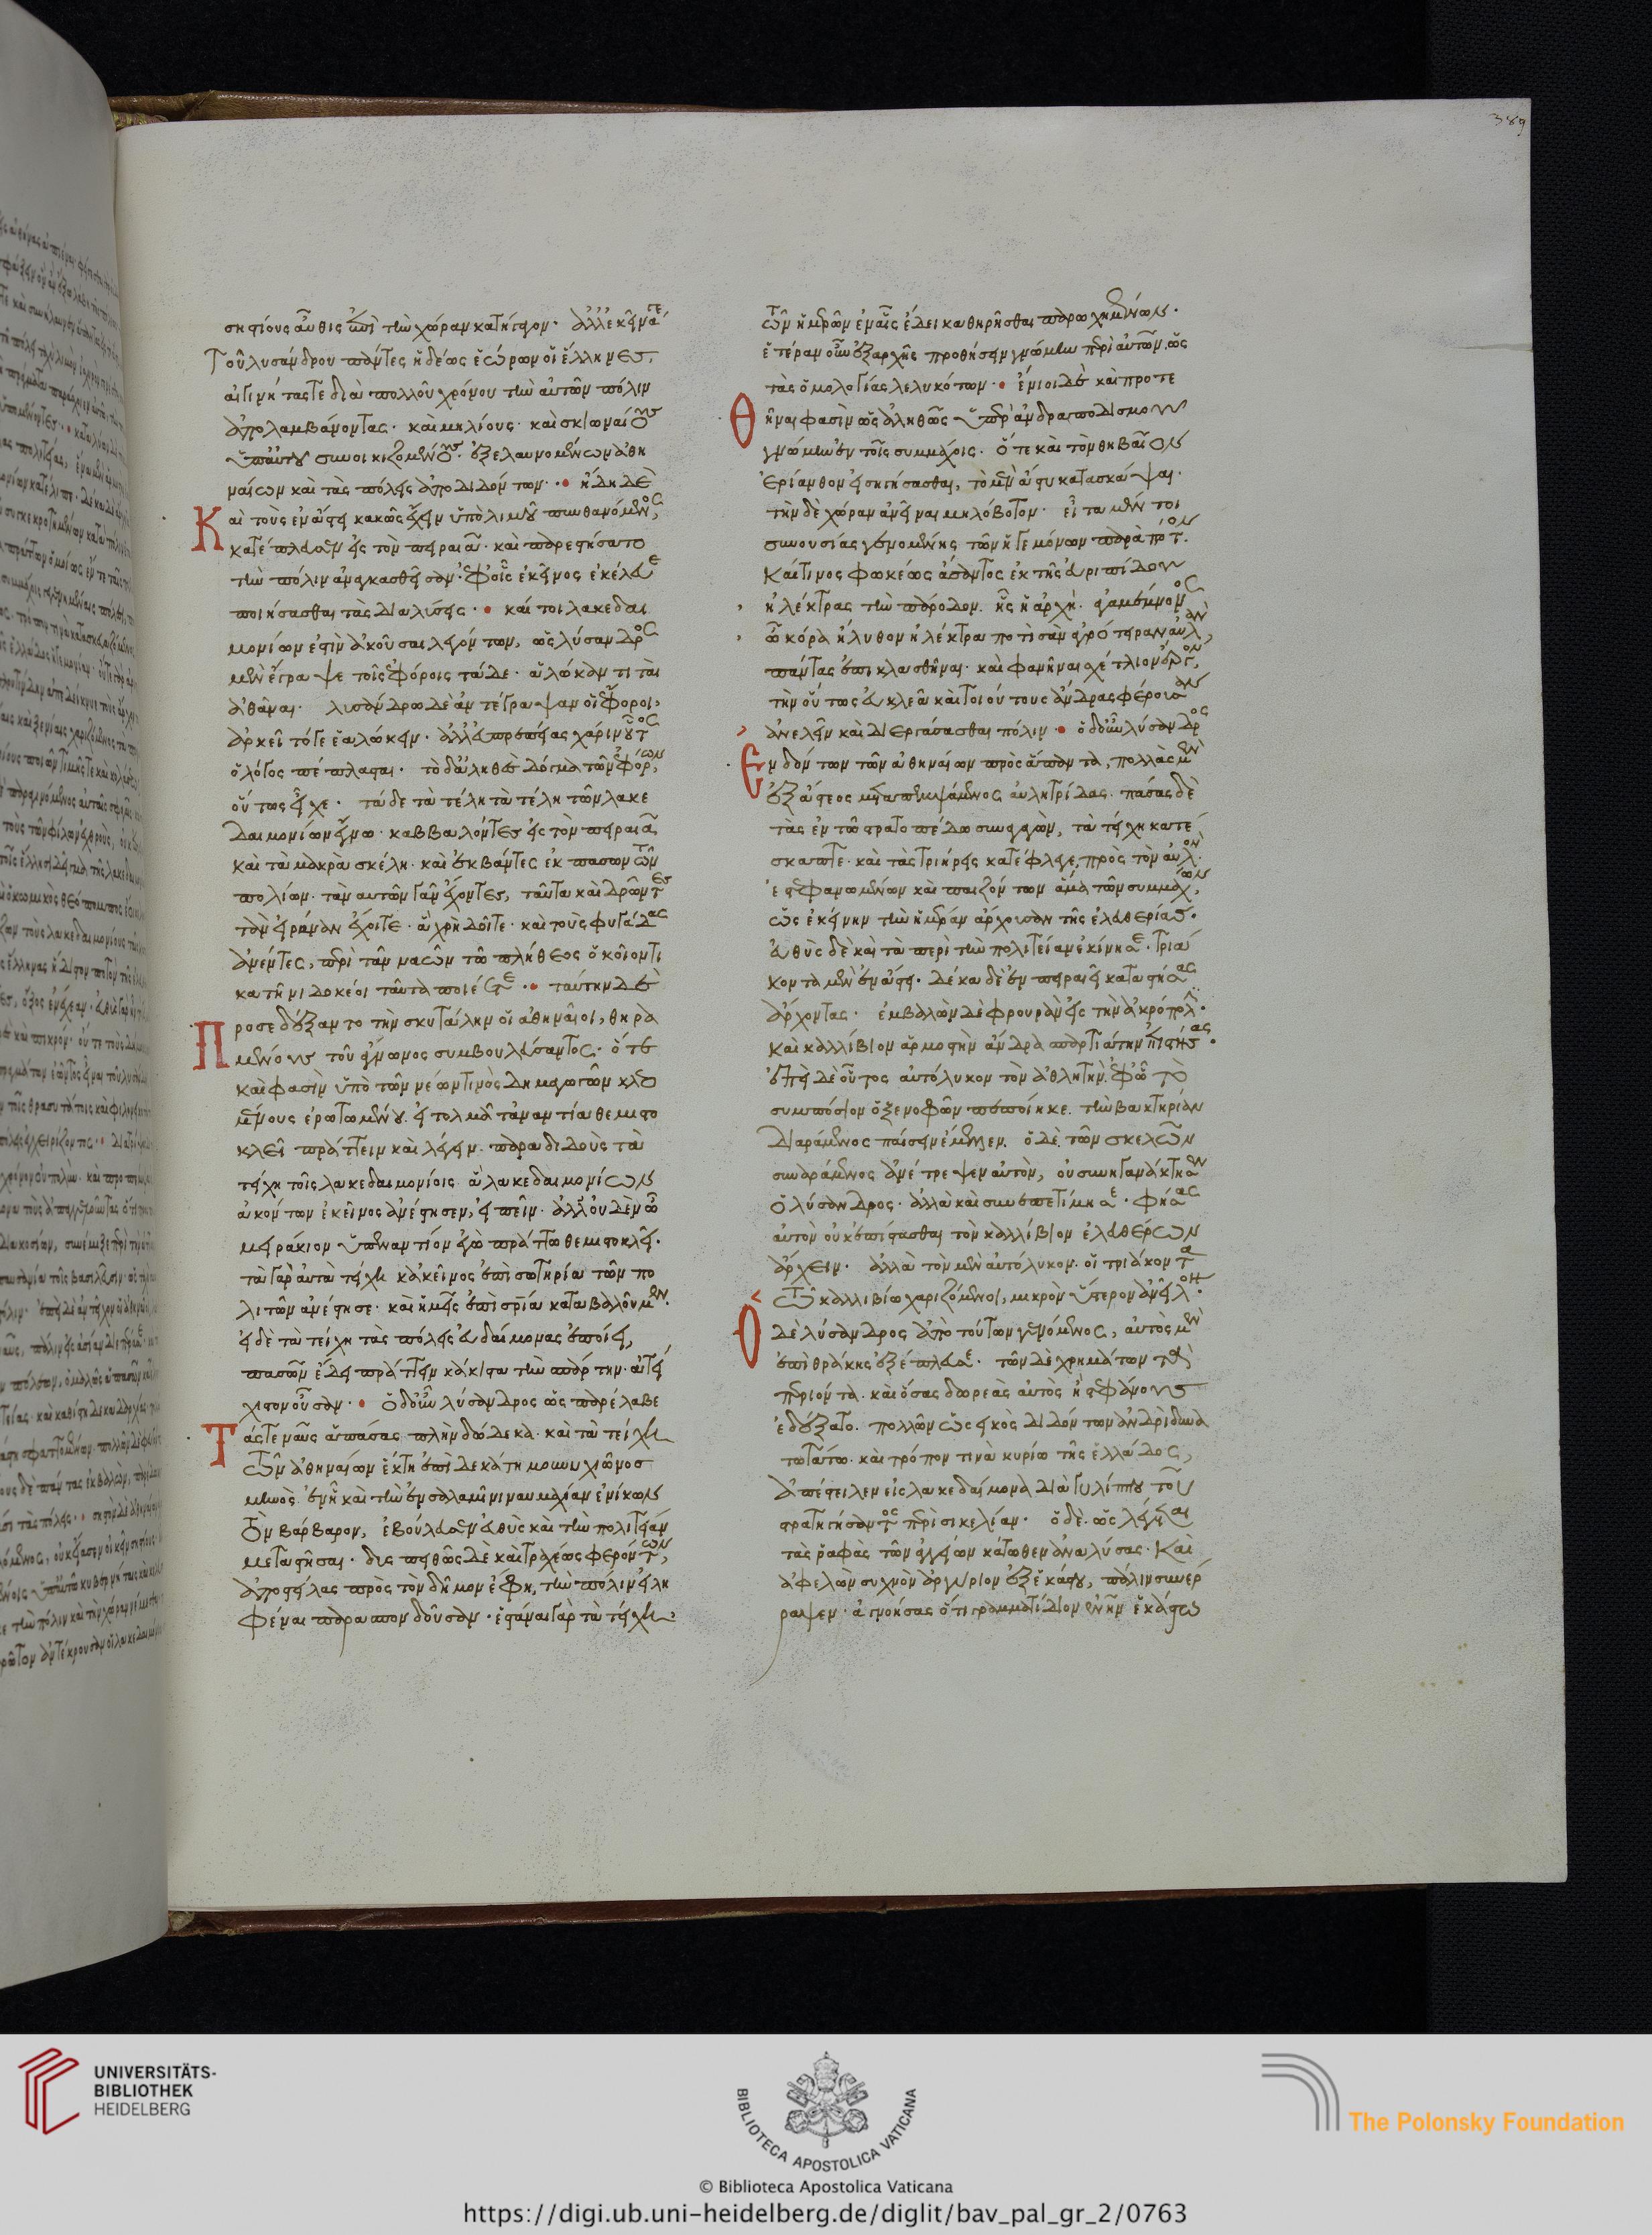 389
σηστίους αὖθις ἐπὶ τὴν χώραν κατήγαγον. ἀλλ' ἐκεῖνά γε
τοῦ λυσάνδρου πάντες ἡδέως ἑώρων οἱ ἕλληνες,
αἰγινήτας τε διὰ πολλοῦ χρόνου τὴν αὐτῶν πόλιν
ἀπολαμβάνοντας· καὶ μηλίους· καὶ σκιωναίους
ὑπ' αὐτοῦ συνοικιζομένους· ἐξελαυνομένων ἀθη
ναίων καὶ τὰς πόλεις ἀποδιδόντων. · ἤδη δὲ
Καὶ τοὺς ἐν ἄστει κακῶς ἔχειν ὑπὸ λιμοῦ πυνθανόμενος,
κατέπλευσεν εἰς τὸν πειραιᾶ· καὶ παρεστήσατο
τὴν πόλιν ἀναγκασθεῖσαν· ἐφ' οἷς ἐκεῖνος ἐκέλευε
ποιήσασθαι τὰς διαλύσεις. · καίτοι λακεδαι
μονίων ἐστὶν ἀκοῦσαι λεγόντων, ὡς λύσανδρος
μὲν ἔγραψε τοῖς ἐφόροις τάδε· ἁλώκαντι ταὶ
ἀθᾶναι. λισάνδρω δὲ ἀντέγραψαν οἱ ἔφοροι,
ἀρκεῖ τόγε ἑαλώκειν. ἀλλ' εὐπρεπείας χάριν οὗτος
ὁ λόγος πέπλασται. τὸ δ' ἀληθὲς δόγμα τῶν ἐφόρων,
οὕτως εἶχε. τάδε τὰ τέλη τὰ τέλη τῶν λακε
δαιμονίων ἔγνω· καββαλόντες ἐς τὸν πειραιᾶ,
καὶ τὰ μακρὰ σκέλη· καὶ ἐκβάντες ἐκ πασῶν τῶν
πολίων· τὰν αυτῶν γᾶν ἔχοντες, ταῦτα καὶ δρῶντες
τὰν εἰράναν ἔχοιτε· ἃ χρὴ δοῖτε· καὶ τοὺς φυγάδας
ἀνέντες, περὶ τᾶν ναῶν τῶ πλήθεος ὁκοῖόν τι
κα τηνὶ δοκέοι ταῦτα ποιέετε. · ταύτην δὲ
Προσεδέξαντο τὴν σκυτάλην οἱ ἀθηναῖοι, θηρα
μένους τοῦ ἅγνωνος συμβουλεύσαντος. ὅτε
καὶ φασὶν ὑπὸ τῶν νέων τινὸς δημαγωγῶν κλεο
μένους ἐρωτωμένου· εἰ τολμᾶ τἀναντία θεμιστο
κλεῖ πράττειν καὶ λέγειν· παραδιδοὺς τὰ
τείχη τοῖς λακεδαιμονίοις ἃ λακεδαιμονίων
ἀκόντων ἐκεῖνος ἀνέστησεν, εἰπεῖν· ἀλλ' οὐδὲν ὦ
μειράκιον ὑπεναντίον ἐγὼ πράττω θεμιστοκλεῖ.
τὰ γὰρ αὐτὰ τείχη κἀκεῖνος ἐπὶ σωτηρία τῶν πο
λιτῶν ἀνέστησε· καὶ ἡμεῖς ἐπὶ σρία καταβαλοῦμεν.
εἰ δὲ τὰ τείχη τὰς πόλεις εὐδαίμονας ἐποίει,
πασῶν ἔδει πράττειν κάκιστα τὴν σπάρτην ἀτεί
χιστον οὖσαν. · ὁ δ' οὖν λύσανδρος ὡς παρέλαβε
Τάς τε ναῦς ἁπάσας πλὴν δώδεκα· καὶ τὰ τείχη
τῶν ἀθηναίων ἕκτη ἐπὶ δεκάτη μουνυχιῶνος
μηνὸς· ἐν ἧ καὶ τὴν ἐν σαλαμῖνι ναυμαχίαν ἐνίκων
τὸν βάρβαρον, ἐβούλευσεν εὐθὺς καὶ τὴν πολιτείαν
μεταστῆσαι. δυσπειθῶς δὲ καὶ τραχέως φερόντων,
ἀποστείλας πρὸς τὸν δῆμον ἔφη, τὴν πόλιν εἰλη
φέναι παρασπονδοῦσαν· ἑστάναι γὰρ τὰ τείχη
τῶν ἡμερῶν ἐν αἷς ἔδει καθηρῆσθαι παρωχημένων.
ἑτέραν οὖν ἐξαρχῆς προθήσειν γνώμην περὶ αὐτῶν ὡς
τὰς ὁμολογίας λελυκότων. · ἔνιοι δὲ καὶ προτε
Θῆναι φασὶν ὡς ἀληθῶς ὑπὲρ ἀνδραποδισμοῦ
γνώμην ἐν τοῖς συμμάχοις. ὅτε καὶ τὸν θηβαῖον
Ἐρίανθον εἰσηγήσασθαι, τὸ μὲν ἄστυ κατασκάψαι.
τὴν δὲ χώραν ἀνεῖναι μηλόβοτον. εἶτα μέντοι
συνουσίας γενομένης τῶν ἡγεμόνων παρὰ πότον.
Καί τινος φωκέως ἄσαντος ἐκ τῆς εὐριπίδου
ἠλέκτρας τὴν πάροδον. ἧς ἡ ἀρχή. ἀγαμέμνονος
ὦ κόρα ἤλυθον ἠλέκτρα ποτὶ σὰν ἀγρότειραν αὐλάν,
πάντας ἐπικλασθῆναι· καὶ φανῆναι σχέτλιον ἔργον,
τὴν οὕτως εὐκλεᾶ καὶ τοιούτους ἄνδρας φέρουσαν
ἀνελεῖν καὶ διεργάσασθαι πόλιν · ὁ δ' οὖν λύσανδρος
Ἐνδόντων τῶν ἀθηναίων πρὸς ἅπαντα, πολλὰς μὲν
ἐξ ἄστεος μεταπεμψάμενος αὐλητρίδας. πάσας δὲ
τὰς ἐν τῶ στρατοπέδω συναγαγὼν, τὰ τείχη κατέ
σκαπτε· καὶ τὰς τριήρεις κατέφλεγε, πρὸς τὸν αὐλὸν.
ἐστεφανωμένων καὶ παιζόντων ἅμα τῶν συμμάχων,
ὡς ἐκείνην τὴν ἡμέραν ἄρχουσαν τῆς ἐλευθερίας.
εὐθὺς δὲ καὶ τὰ περὶ τὴν πολιτείαν ἐκίνησε. τριά
κοντα μὲν ἐν ἄστει. δέκα δὲ ἐν πειραιεῖ καταστήσας
ἄρχοντας. ἐμβαλὼν δὲ φρουρὰν εἰς τὴν ἀκρόπολιν.
καὶ καλλίβιον ἁρμοστὴν ἄνδρα σπαρτιάτην ἐπιστήσας.
ἐπεὶ δὲ οὗτος αὐτόλυκον τὸν ἀθλητήν, ἐφ' ὧ τὸ
συμπόσιον ὁ ξενοφῶν πεποίηκε. τὴν βακτηρίαν
διαράμενος παίσειν ἔμελλεν. ὁ δὲ τῶν σκελῶν
συναράμενος ἀνέτρεψεν αὐτὸν, οὐ συνηγανάκτησεν
ὁ λύσανδρος. ἀλλὰ καὶ συνεπετίμησε. φήσας
αὐτὸν οὐκ ἐπίστασθαι τὸν καλλίβιον ἐλευθέρων
ἄρχειν. ἀλλὰ τὸν μὲν αὐτόλυκον. οἱ τριάκοντα
τῶ καλλιβίω χαριζόμενοι, μικρὸν ὕστερον ἀνεῖλον.
Ὁ δὲ λύσανδρος ἀπὸ τούτων γενόμενος, αὐτὸς μὲν
ἐπὶ θράκης ἐξέπλευσε. τῶν δὲ χρημάτων τὰ
περιόντα. καὶ ὅσας δωρεὰς αὐτὸς ἢ στεφάνους
ἐδέξατο. πολλῶν ὡς εἰκὸς διδόντων ἀνδρὶ δυνα
τωτάτω. καὶ τρόπον τινὰ κυρίω τῆς ἑλλάδος,
ἀπέστειλεν εἰς λακεδαίμονα διὰ γυλίππου τοῦ
στρατηγήσαντος περὶ σικελίαν. ὁ δὲ. ὡς λέγεται
τὰς ῥαφὰς τῶν ἀγγείων κάτωθεν ἀναλύσας. Καὶ
ἀφελὼν συχνὸν ἀργύριον ἐξ ἑκάστου, πάλιν συνέρ
ραψεν· ἀγνοήσας ὅτι γραμματίδιον ἐνῆν ἑκάστω
UNIVERSITÄTS-
BIBLIOTHEK
HEIDELBERG
BIBLIOTECA APOSTOLICA VATICANA
The Polonsky Foundation
© Biblioteca Apostolica Vaticana
https://digi.ub.uni-heidelberg.de/diglit/bav_pal_gr_2/0763